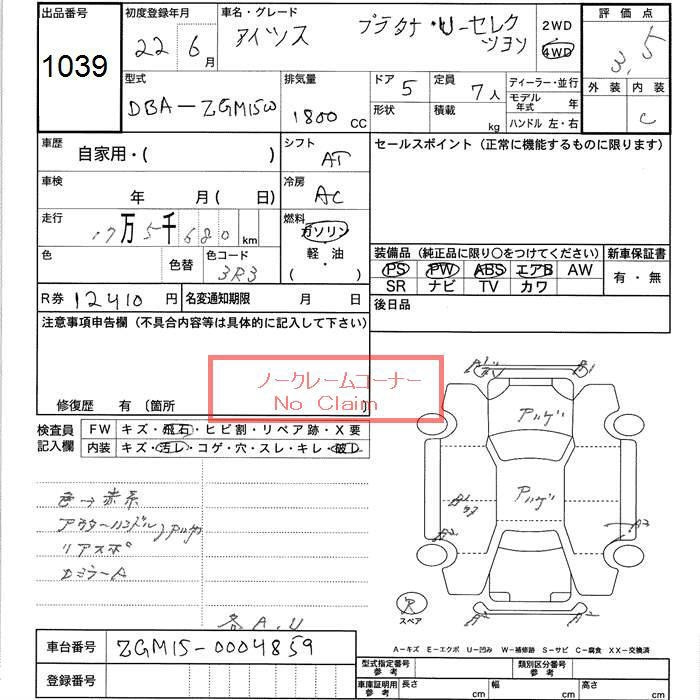 出品番号
1039
初度登録年月
22 6月
車名・グレード
アイシス プラタナ・U-セレクション
2WD
4WD
評価点
3.5
外装 内装
C
型式
DBA-ZGM15W
排気量
1800 CC
ドア 5
定員 7人
形状
積載 kg
ディーラー・並行
モデル年式 年
ハンドル 左・右
車歴
自家用・( )
シフト
AT
セールスポイント (正常に機能するものに限ります)
車検
年 月( 日)
冷房
AC
走行
17万5千680 km
燃料
ガソリン
軽・油
( )
色
色替
色コード
3R3
装備品 (純正品に限り○をつけてください)
新車保証書
PS PW ABS エアB AW
有・無
SR ナビ TV カワ
R券 12410 円
名変通知期限 月 日
後日品
注意事項申告欄 (不具合内容等は具体的に記入して下さい)
ノークレームコーナー
No Claim
修復歴 有 〔箇所
検査員記入欄
FW キズ・飛石・ヒビ割・リペア跡・X要
内装 キズ・汚レ・コゲ・穴・スレ・キレ・破レ
色→赤系
アウターハンドル
リアスポ
Dミラー A
各A.U
A1
B1
アハゲ
アハゲ
A2
A2
A2
A2
R
スペア
A-キズ E-エクボ U-凹み W-補修跡 S-サビ C-腐食 XX-交換済
車台番号 ZGM15-0004859
登録番号
型式指定番号 参考
類別区分番号 参考
車庫証明用 参考
長さ cm
幅 cm
高さ cm